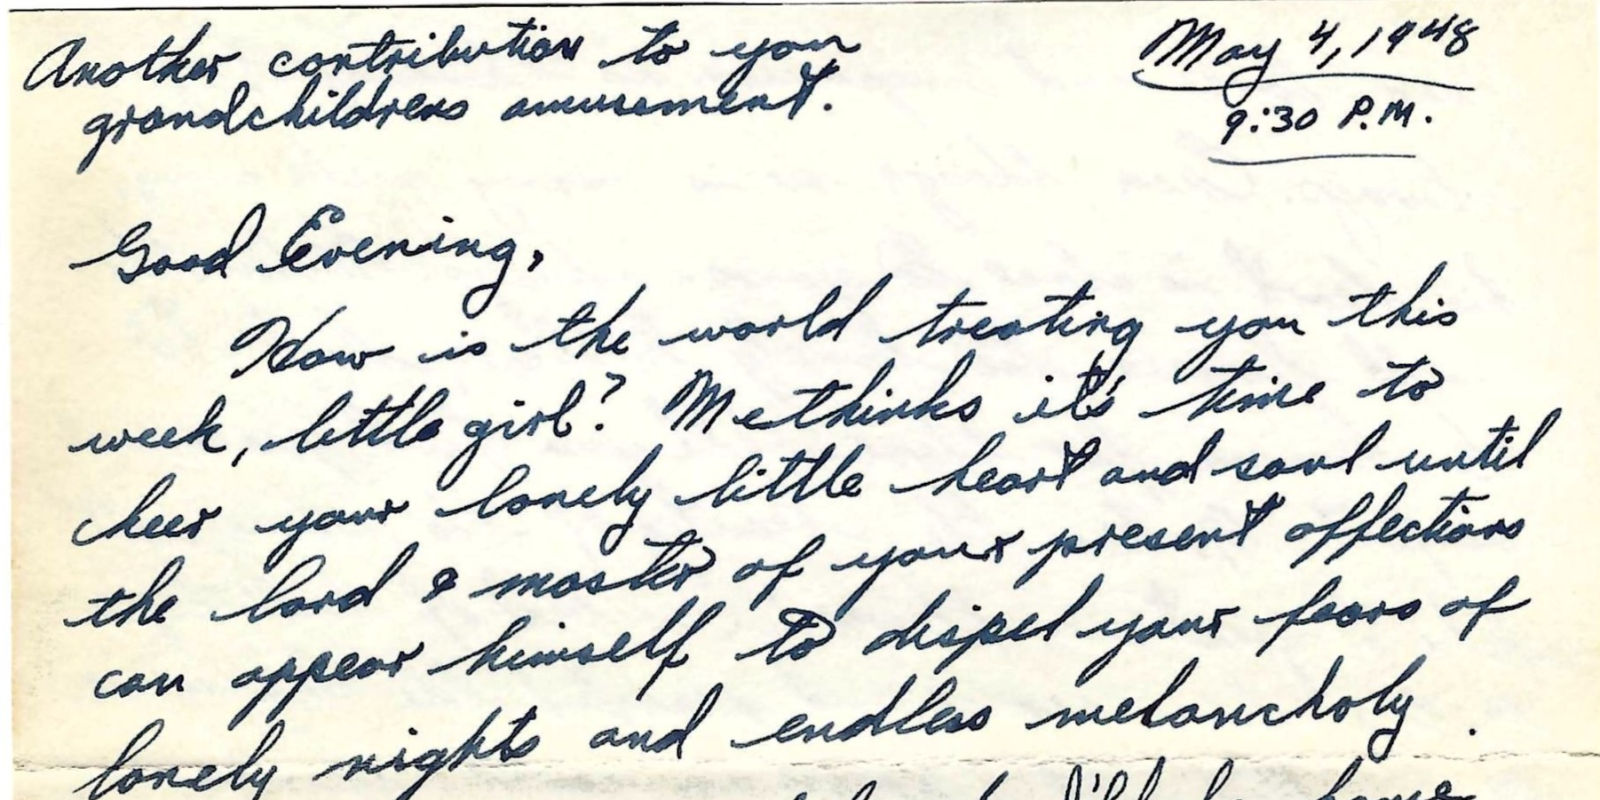 Another contribution to you
grandchildrens amusement.
May 4, 1948
9:30 P.M.
Good Evening,
How is the world treating you this
week, little girl? Methinks it's time to
cheer your lonely little heart and soul until
the lord & master of your present affections
can appear himself to dispel your fears of
lonely nights and endless melancholy.
I'll be home